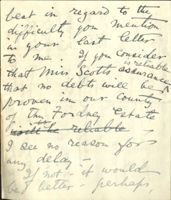 best in regard to the
difficulty you mention
in your last letter
to me. If you consider
reliable
that Miss Scott's assurance
that no debts will be
proven in our county
of the Fordney Estate
will be reliable
I see no reason for
any delay -
If not - it would
be better - perhaps